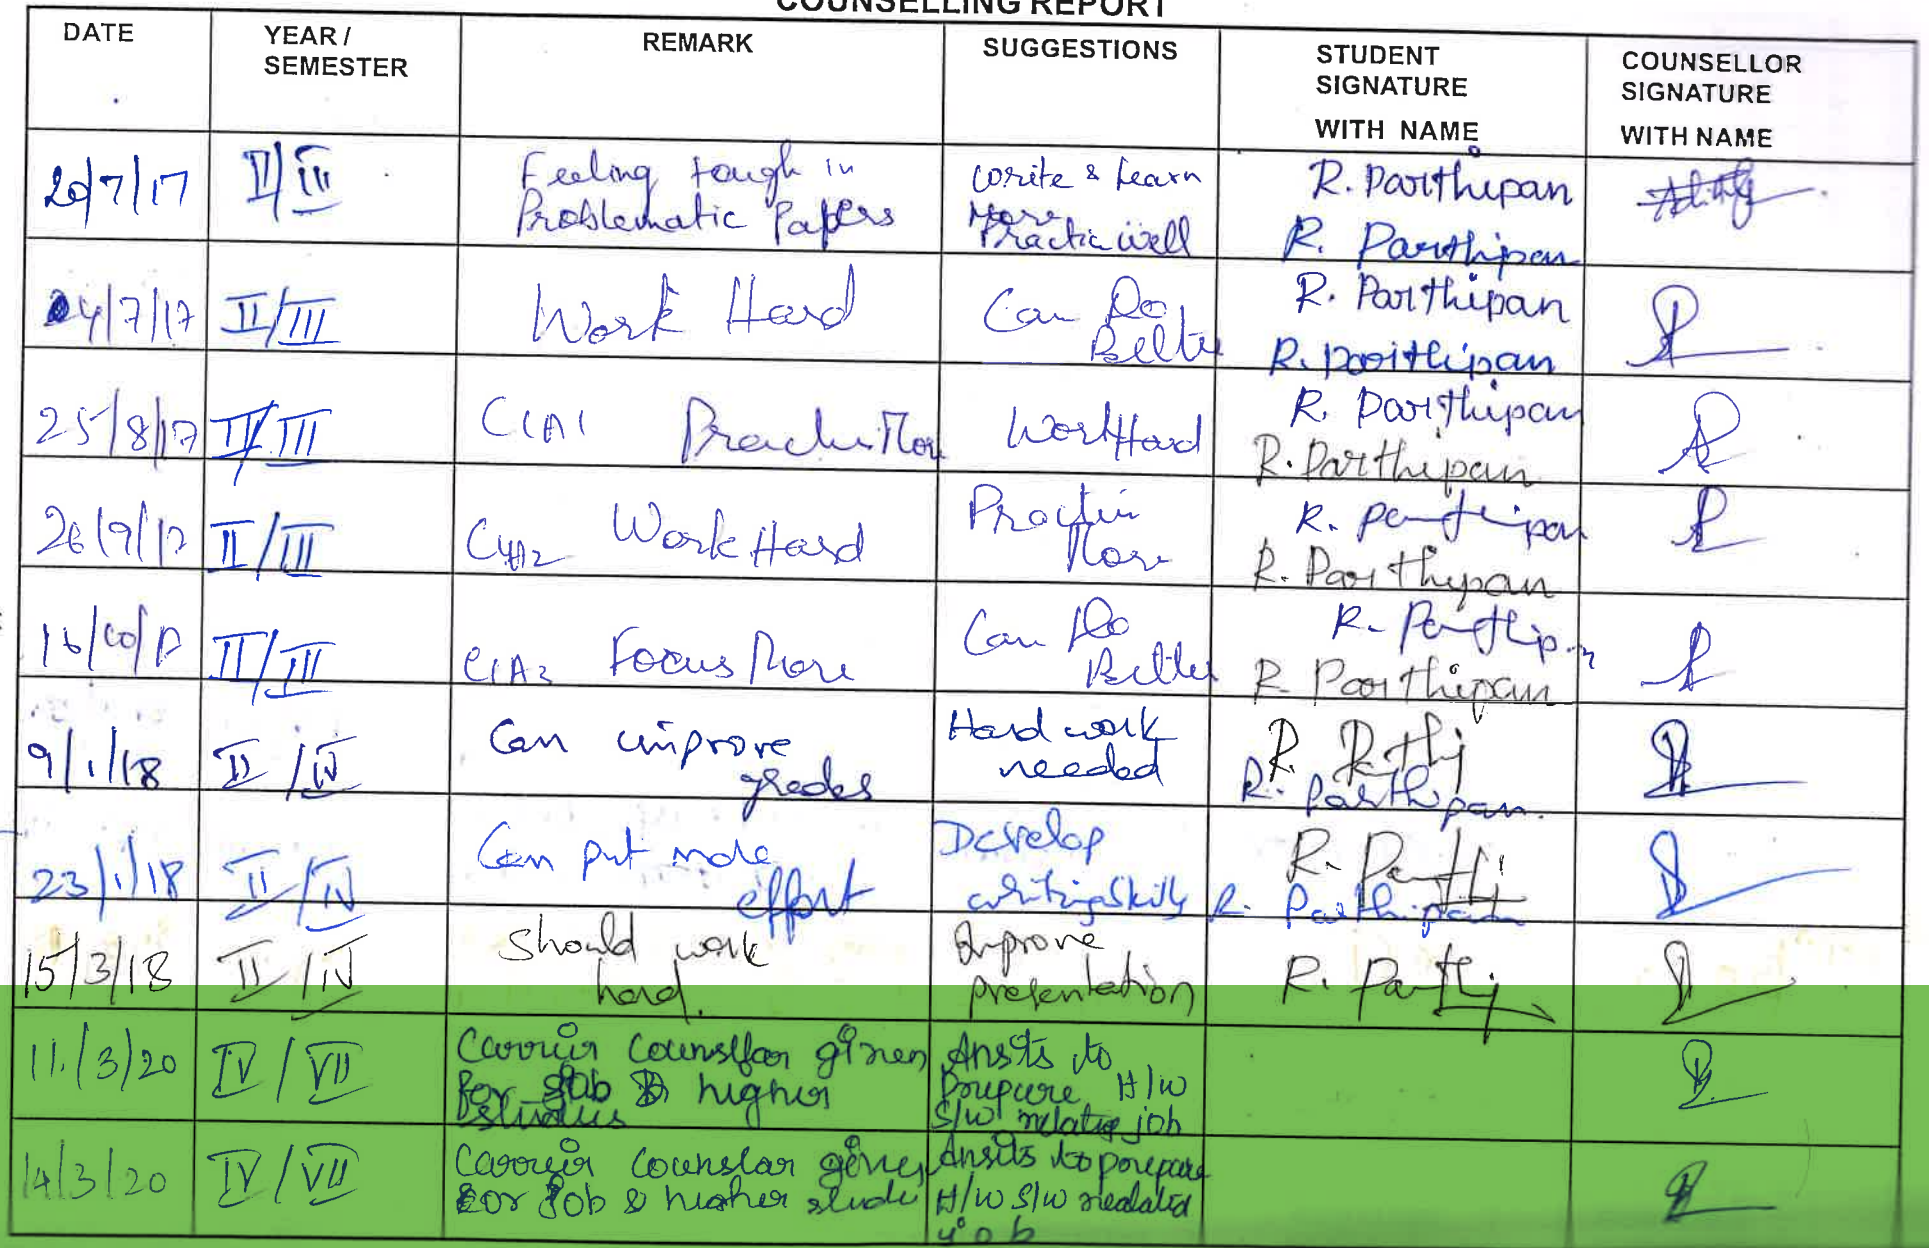 COUNSELLING REPORT
DATE
YEAR /
SEMESTER
REMARK
SUGGESTIONS
STUDENT
SIGNATURE
WITH NAME
COUNSELLOR
SIGNATURE
WITH NAME
20/7/17
II/III
Feeling tough in
Problematic Papers
write & Learn
More
Practice well
R. Parthipan
R. Parthipan
24/7/17
II/III
Work Hard
Can Do
Better
R. Parthipan
R. Parthipan
25/8/17
II/III
CIA1 Practice More
Work Hard
R. Parthipan
R. Parthipan
26/9/17
II/III
CIA2 Work Hard
Practice
More
R. Parthipan
R. Parthipan
16/10/17
II/III
CIA3 Focus More
Can Do
Better
R. Parthipan
R. Parthipan
9/1/18
II/IV
Can improve
grades
Hard work
needed
R. Parthi
R. Parthipan
23/1/18
II/IV
Can put more
effort
Develop
writing Skills
R. Parthi
R. Parthipan
15/3/18
II/IV
Should work
hard.
Improve
presentation
R. Parthi
11/3/20
IV/VII
Carrier given
for Job & higher
studies
to
prepare H/W
S/W job
14/3/20
IV/VII
Carrier
For Job & higher
to prepare
H/W S/W
job